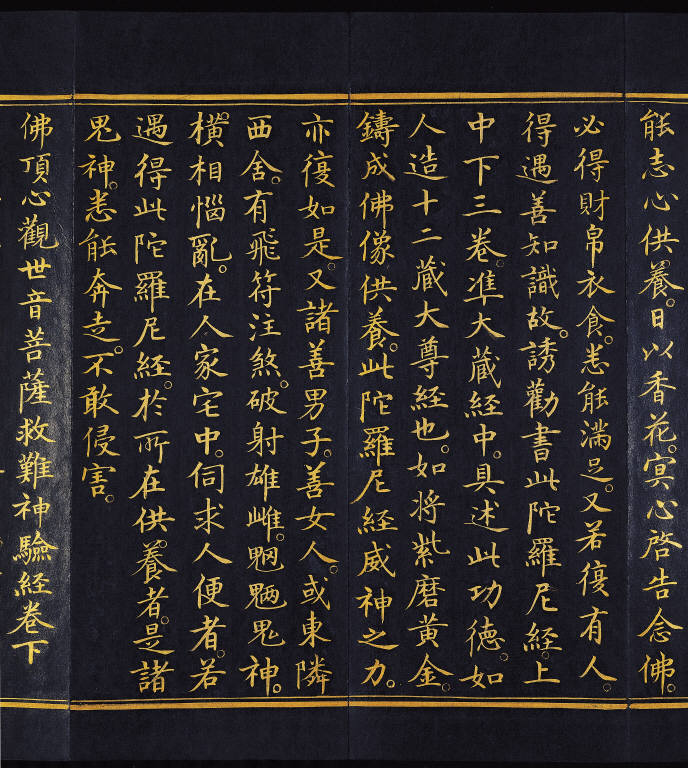 能志心供養。日以香花。㝠心啓告念佛。
必得財帛衣食。悉能滿足。又若復有人。
得遇善知識故。誘勸書此陀羅尼經。上
中下三卷。准大藏經中。具述此功德。如
人造十二藏大尊經也。如將紫磨黃金。
鑄成佛像供養。此陀羅尼經威神之力。
亦復如是。又諸善男子。善女人。或東隣
西舍。有飛符注煞。破射雄雌。魍魎鬼神。
橫相惱亂。在人家宅中。伺求人便者。若
遇得此陀羅尼經。於所在供養者。是諸
鬼神。悉能奔走。不敢侵害。
佛頂心觀世音菩薩救難神驗經卷下